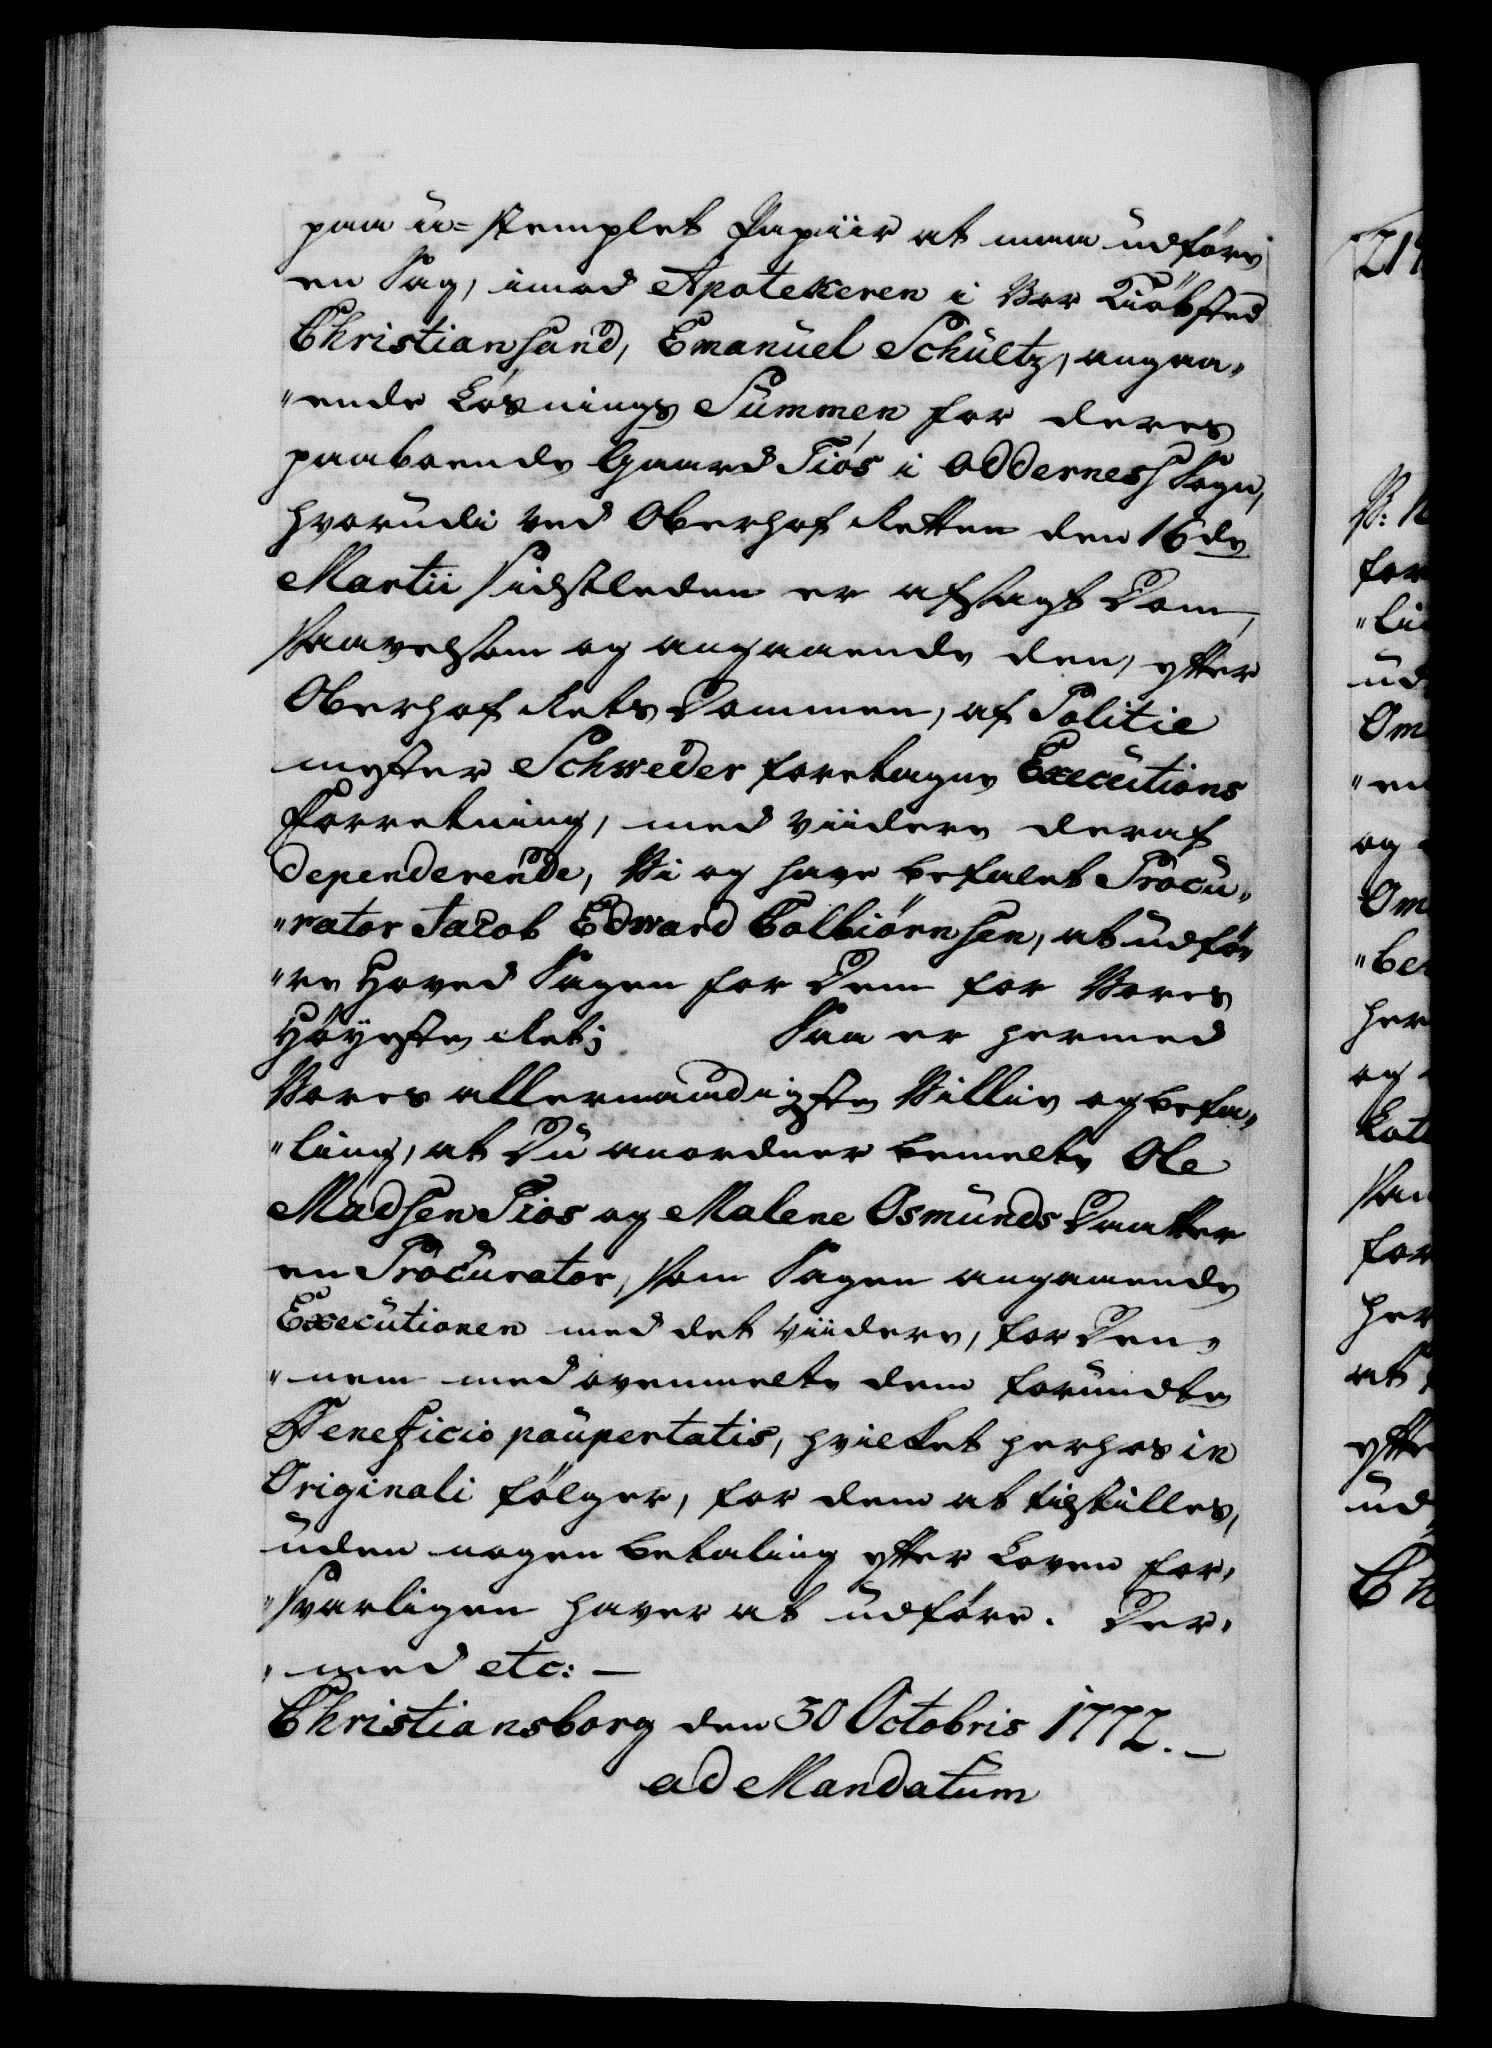 paa u=stemplet Papiir at maa udføre
en Sag, imod Apotekeren i Vor Kiøbsted
Christiansand, Emanuel Schultz, angaa„
„ende Løsnings Summen for deres
paaboende Gaard Tiøs i Oddernes Sogn,
hvorudi ved Oberhof Retten den 16de
Martii sidstleden er afsagt Dom,
saavelsom og angaaende den, efter
Oberhof Rets Dommen, af Politie
mester Schweder foretagne Executions
Forretning, med viidere deraf
dependerende, Vi og have befalet Procu„
„rator Jacob Edward Colbiørnsen, at udfø„
„re Hoved Sagen for Dem for Vores
Høyeste Ret; Saa er hermed
Vores allernaadigste Villie og befa„
„ling, at Du anordner bemelte Ole
Madsen Tios og Malene Osmunds Daatter
en Procurator, som Sagen angaaende
Executionen med det viidere, for Den„
„nem med ovenmelte dem forundte
Beneficio paupertatis, hvilket herhos in
Originali følger, for dem at tilstilles,
uden nogen betaling efter Loven for„
„svarligen haver at udføre. Der„
„med etc: —
Christiansborg den 30 Octobris 1772. —
ad Mandatum